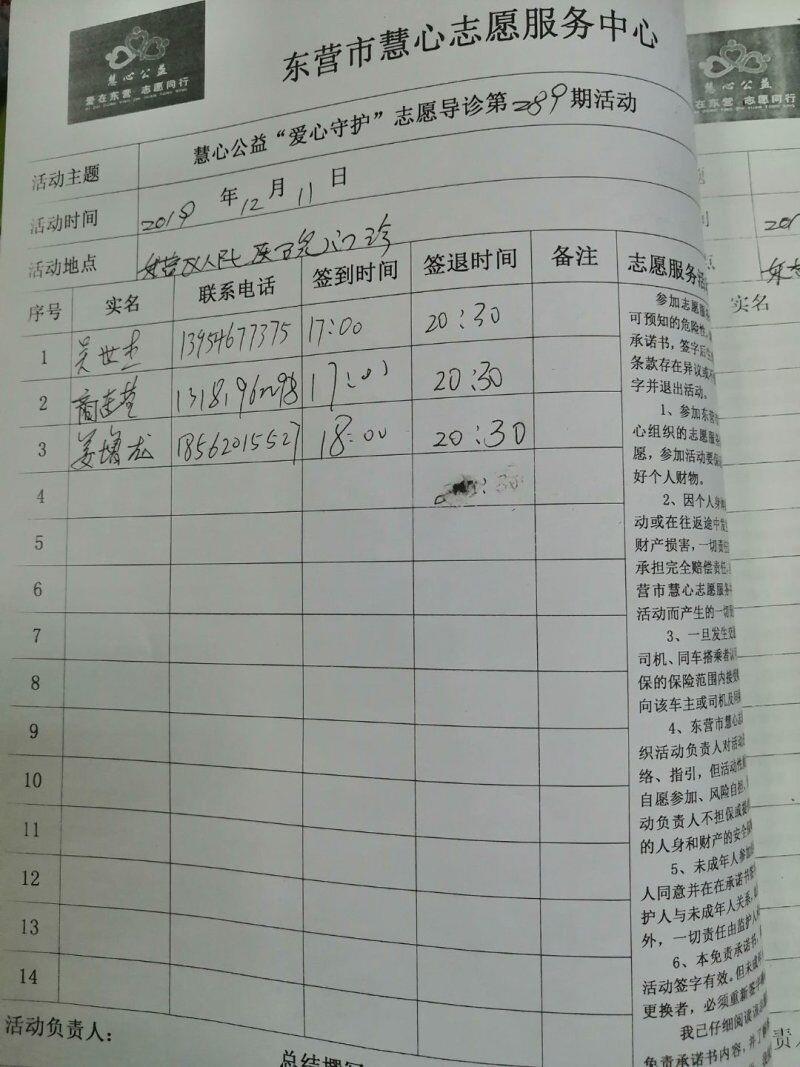 慧心公益
爱在东营 志愿同行
东营市慧心志愿服务中心
活动主题 慧心公益“爱心守护”志愿导诊第289期活动
活动时间 2019年12月11日
活动地点 东营区人民医院门诊
序号 实名 联系电话 签到时间 签退时间 备注
1 吴世杰 13954677375 17:00 20:30
2 商连营 13181962298 17:00 20:30
3 姜增龙 18562015527 18:00 20:30
4 :30
5
6
7
8
9
10
11
12
13
14
活动负责人：
总结撰写
志愿服务活
参加志愿服
可预知的危险性
承诺书，签字后
条款存在异议或不
字并退出活动。
1、参加东营
心组织的志愿服务
愿，参加活动要保
好个人财物。
2、因个人身
动或在往返途中发
财产损害，一切责任
承担完全赔偿责任
营市慧心志愿服务
活动而产生的一切
3、一旦发生交
司机、同车搭乘者
保的保险范围内接受
向该车主或司机及
4、东营市慧心志
织活动负责人对活动
络、指引，但活动
自愿参加、风险自担，
动负责人不担保或
的人身和财产的安全
5、未成年人参加
人同意并在在承诺书
护人与未成年人关系，
外，一切责任由监护人
6、本免责承诺书，
活动签字有效。但未
更换者，必须重新签
我已仔细阅读
免责承诺书内容，并了
慧心公益
爱在东营 志愿同行
实名